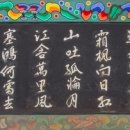 霜楓向日紅
山吐孤輪月
江含萬里風
塞鴻何處去